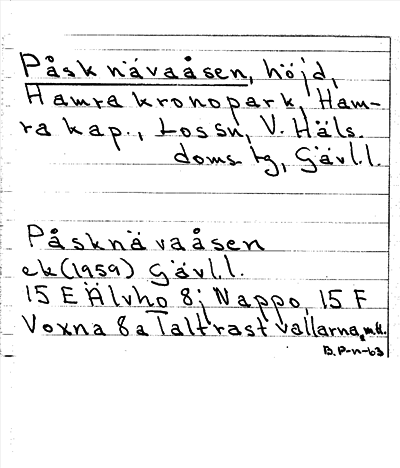 Påsknävaåsen, höjd,
Hamra kronopark, Ham-
ra kap., Lossn, V. Häls.
doms tg, Gävl.l.
Påsknävaåsen
ek (1959) Gävl.l.
15 E Älvho 8j Nappo, 15 F
Voxna 8a Taltrastvallarna, m.fl.
B. P-n-63